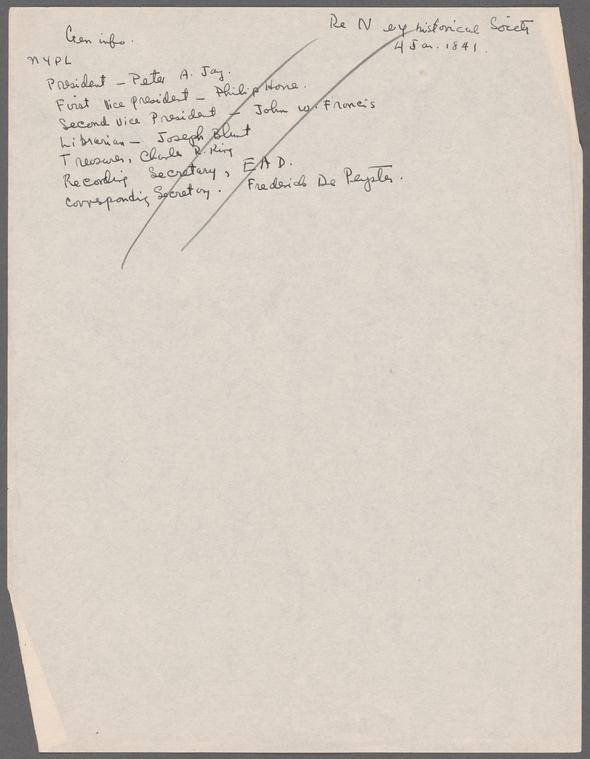 Gen info.
Re N ey historical Society
4 Jan. 1841.
NYPL
President – Peter A. Jay.
First Vice president – Philip Hone.
Second Vice President – John W. Francis
Librarian – Joseph Blunt
Treasurer, Charles R. King
Recording Secretary, E A D.
Corresponding Secretary. Frederick De Peyster.